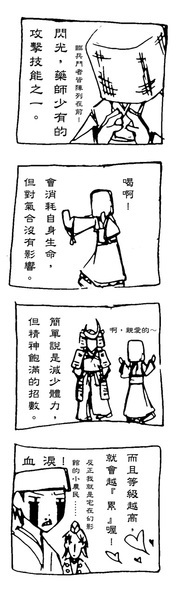 閃光，藥師少有的
攻擊技能之一。
臨兵鬥者皆陣列在前！
喝啊！
會消耗自身生命，
但對氣合沒有影響。
啊，親愛的～
簡單說是減少體力，
但精神飽滿的招數。
而且等級越高，
就會越『累』喔！
反正我就是宅在幻影
館的小農民……
血淚！